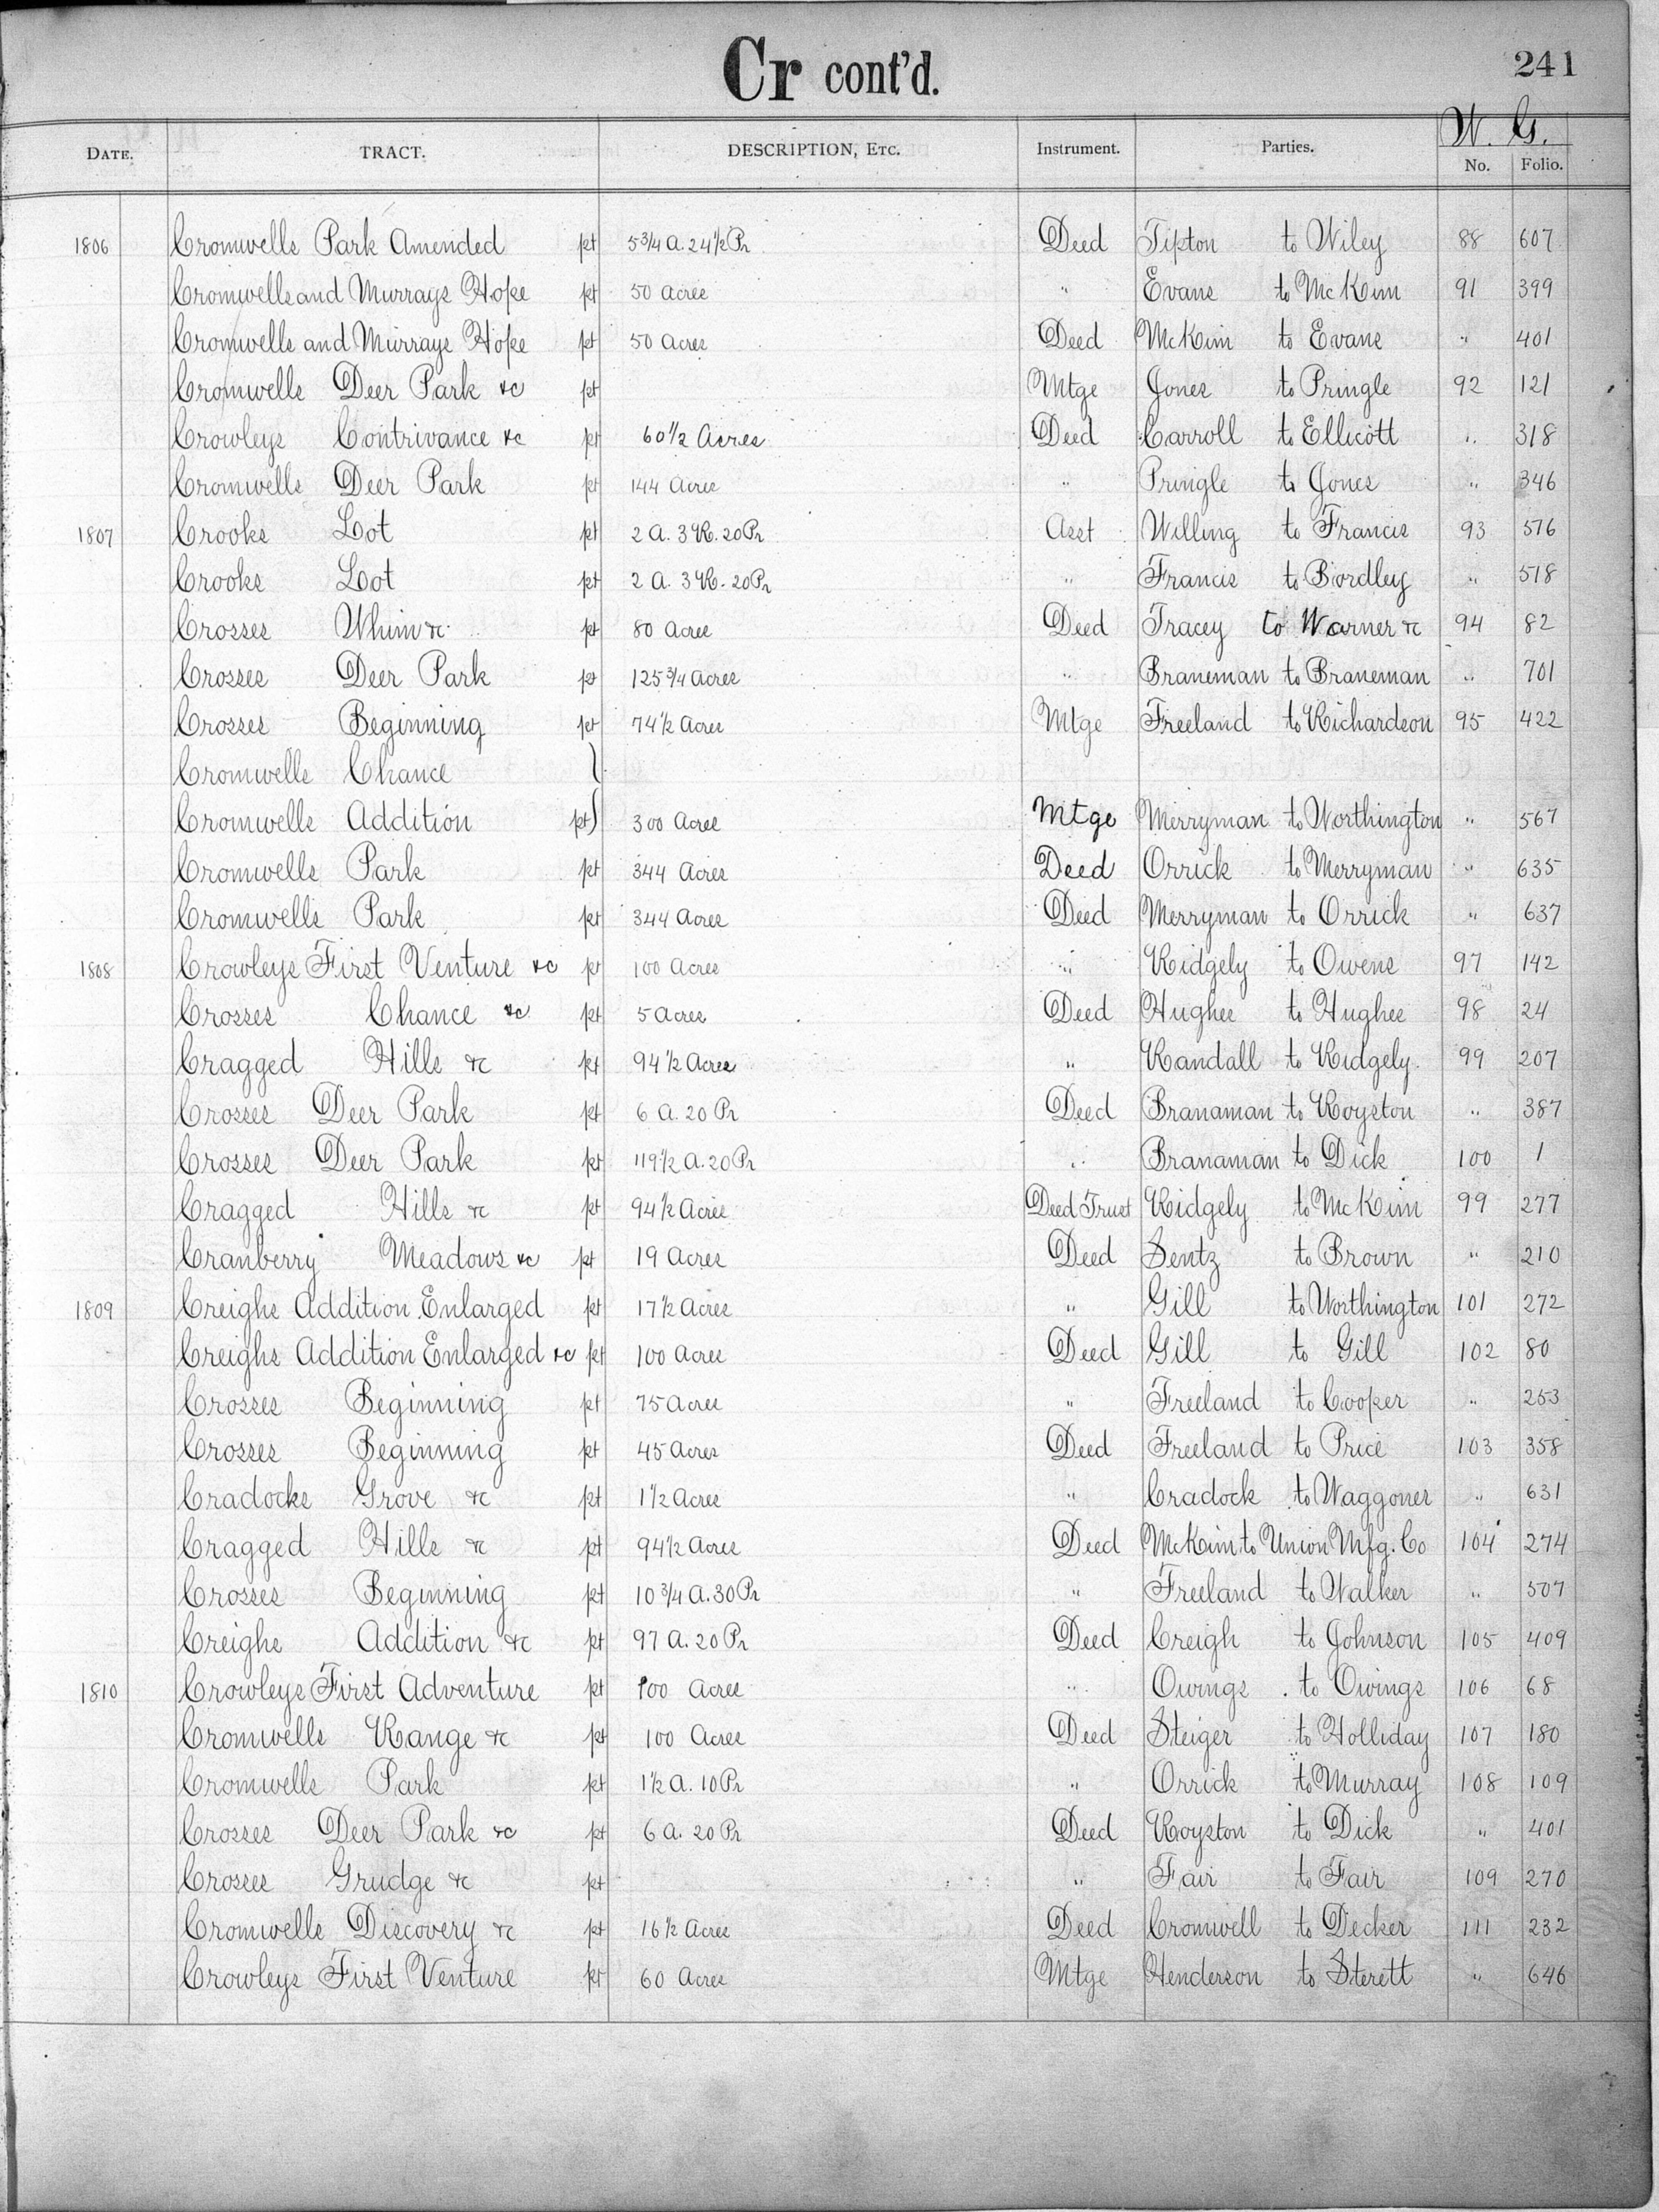 Cr cont'd.
241
W. G.
DATE. TRACT. DESCRIPTION, Etc. Instrument. Parties. No. Folio.
1806 Cromwells Park Amended pt 5 3/4 A. 24 1/2 Pr Deed Tipton to Wiley 88 607
Cromwells and Murrays Hope pt 50 Acres " Evans to McKim 91 399
Cromwells and Murrays Hope pt 50 Acres Deed McKim to Evans " 401
Cromwells Deer Park &c pt Mtge Jones to Pringle 92 121
Crowleys Contrivance &c pt 60 1/2 Acres Deed Carroll to Ellicott " 318
Cromwells Deer Park pt 144 Acres " Pringle to Jones " 346
1807 Crooks Lot pt 2 A. 3 R. 20 Pr Asst Willing to Francis 93 576
Crooks Lot pt 2 A. 3 R. 20 Pr " Francis to Bordley " 518
Crosses Whim &c pt 80 Acres Deed Tracey to Warner &c 94 82
Crosses Deer Park pt 125 3/4 Acres " Braneman to Braneman " 701
Crosses Beginning pt 74 1/2 Acres Mtge Freeland to Richardson 95 422
Cromwells Chance }
Cromwells Addition pt } 300 Acres Mtge Merryman to Worthington " 567
Cromwells Park pt 344 Acres Deed Orrick to Merryman " 635
Cromwells Park pt 344 Acres Deed Merryman to Orrick " 637
1808 Crowleys First Venture &c pt 100 Acres " Ridgely to Owens 97 142
Crosses Chance &c pt 5 Acres Deed Hughes to Hughes 98 24
Cragged Hills &c pt 94 1/2 Acres " Randall to Ridgely 99 207
Crosses Deer Park pt 6 A. 20 Pr Deed Branaman to Royston " 387
Crosses Deer Park pt 119 1/2 A. 20 Pr " Branaman to Dick 100 1
Cragged Hills &c pt 94 1/2 Acres Deed Trust Ridgely to McKim 99 277
Cranberry Meadows &c pt 19 Acres Deed Sentz to Brown " 210
1809 Creighs Addition Enlarged pt 17 1/2 Acres " Gill to Worthington 101 272
Creighs Addition Enlarged &c pt 100 Acres Deed Gill to Gill 102 80
Crosses Beginning pt 75 Acres " Freeland to Cooper " 253
Crosses Beginning pt 45 Acres Deed Freeland to Price 103 358
Cradocks Grove &c pt 1 1/2 Acres " Cradock to Waggoner " 631
Cragged Hills &c pt 94 1/2 Acres Deed McKim to Union Mfg. Co 104 274
Crosses Beginning pt 10 3/4 A. 30 Pr " Freeland to Walker " 507
Creighs Addition &c pt 97 A. 20 Pr Deed Creigh to Johnson 105 409
1810 Crowleys First Adventure pt 100 Acres " Owings to Owings 106 68
Cromwells Range &c pt 100 Acres Deed Steiger to Holliday 107 180
Cromwells Park pt 1 1/2 A. 10 Pr " Orrick to Murray 108 109
Crosses Deer Park &c pt 6 A. 20 Pr Deed Royston to Dick " 401
Crosses Grudge &c pt " Fair to Fair 109 270
Cromwells Discovery &c pt 16 1/2 Acres Deed Cromwell to Decker 111 232
Crowleys First Venture pt 60 Acres Mtge Henderson to Sterett " 646